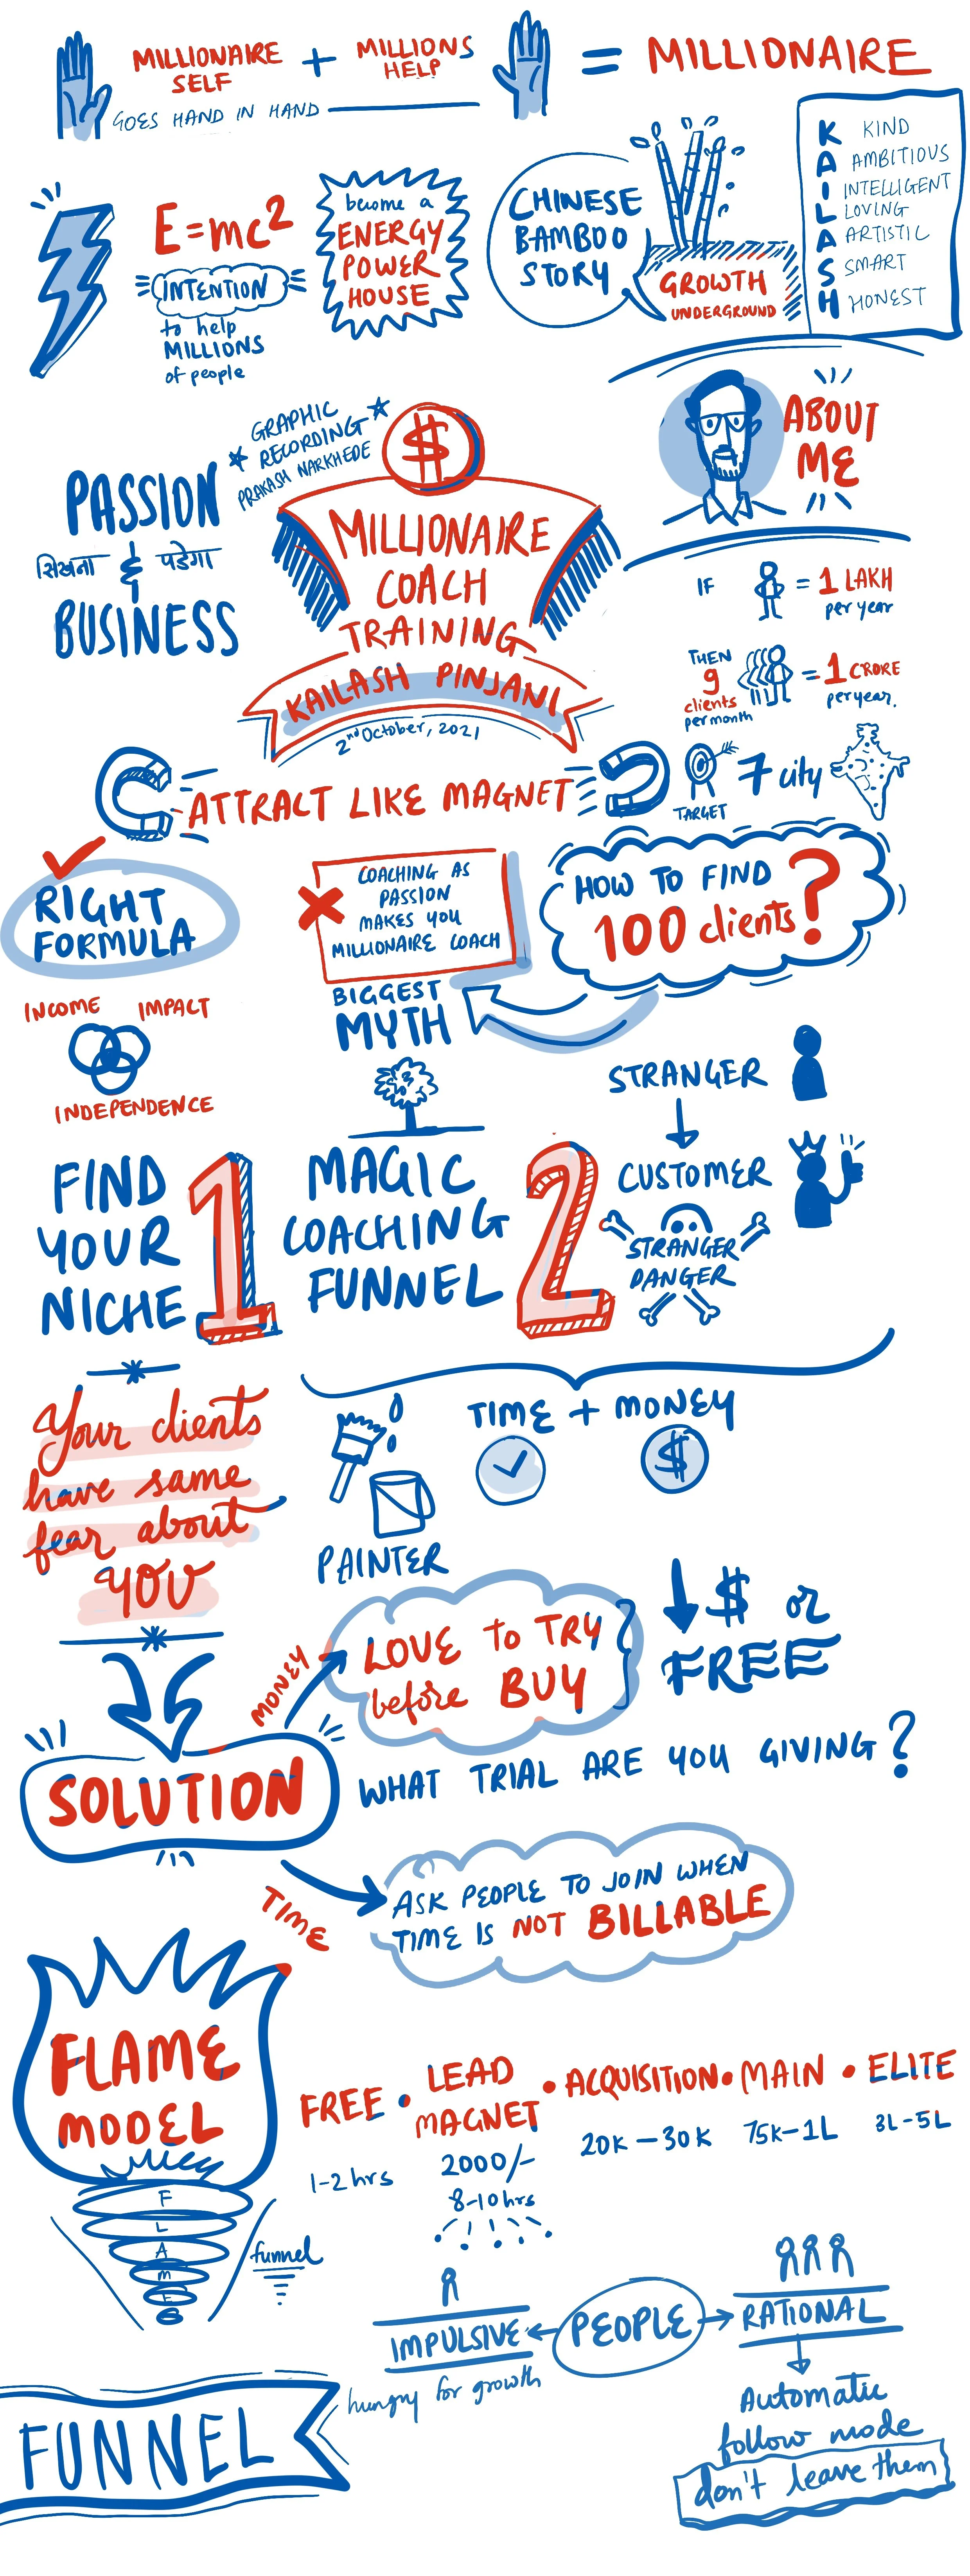 MILLIONAIRE
SELF
+
MILLIONS
HELP
= MILLIONAIRE
GOES HAND IN HAND
E=mc2
INTENTION
to help
MILLIONS
of people
become a
ENERGY
POWER
HOUSE
CHINESE
BAMBOO
STORY
GROWTH
UNDERGROUND
K KIND
A AMBITIOUS
I INTELLIGENT
L LOVING
A ARTISTIC
S SMART
H HONEST
GRAPHIC
RECORDING
PRAKASH NARKHEDE
PASSION
सिखना & पडेगा
BUSINESS
$
MILLIONAIRE
COACH
TRAINING
KAILASH PINJANI
2nd October, 2021
ABOUT
ME
IF = 1 LAKH
per year
THEN
9
clients
per month
= 1 CRORE
per year.
TARGET
7 city
ATTRACT LIKE MAGNET
RIGHT
FORMULA
INCOME IMPACT
INDEPENDENCE
COACHING AS
PASSION
MAKES YOU
MILLIONAIRE COACH
BIGGEST
MYTH
HOW TO FIND
100 clients?
FIND
YOUR
NICHE
1
MAGIC
COACHING
FUNNEL
2
STRANGER
CUSTOMER
STRANGER
DANGER
Your clients
have same
fear about
YOU
TIME + MONEY
$
PAINTER
SOLUTION
MONEY
LOVE to TRY
before BUY
$ or
FREE
WHAT TRIAL ARE YOU GIVING?
TIME
ASK PEOPLE TO JOIN WHEN
TIME IS NOT BILLABLE
FLAME
MODEL
F
L
A
M
E
funnel
FREE • LEAD MAGNET • ACQUISITION • MAIN • ELITE
1-2 hrs
2000/-
8-10 hrs
20K - 30K
75K-1L
3L-5L
IMPULSIVE
PEOPLE
RATIONAL
hungry for growth
Automatic
follow mode
don't leave them
FUNNEL